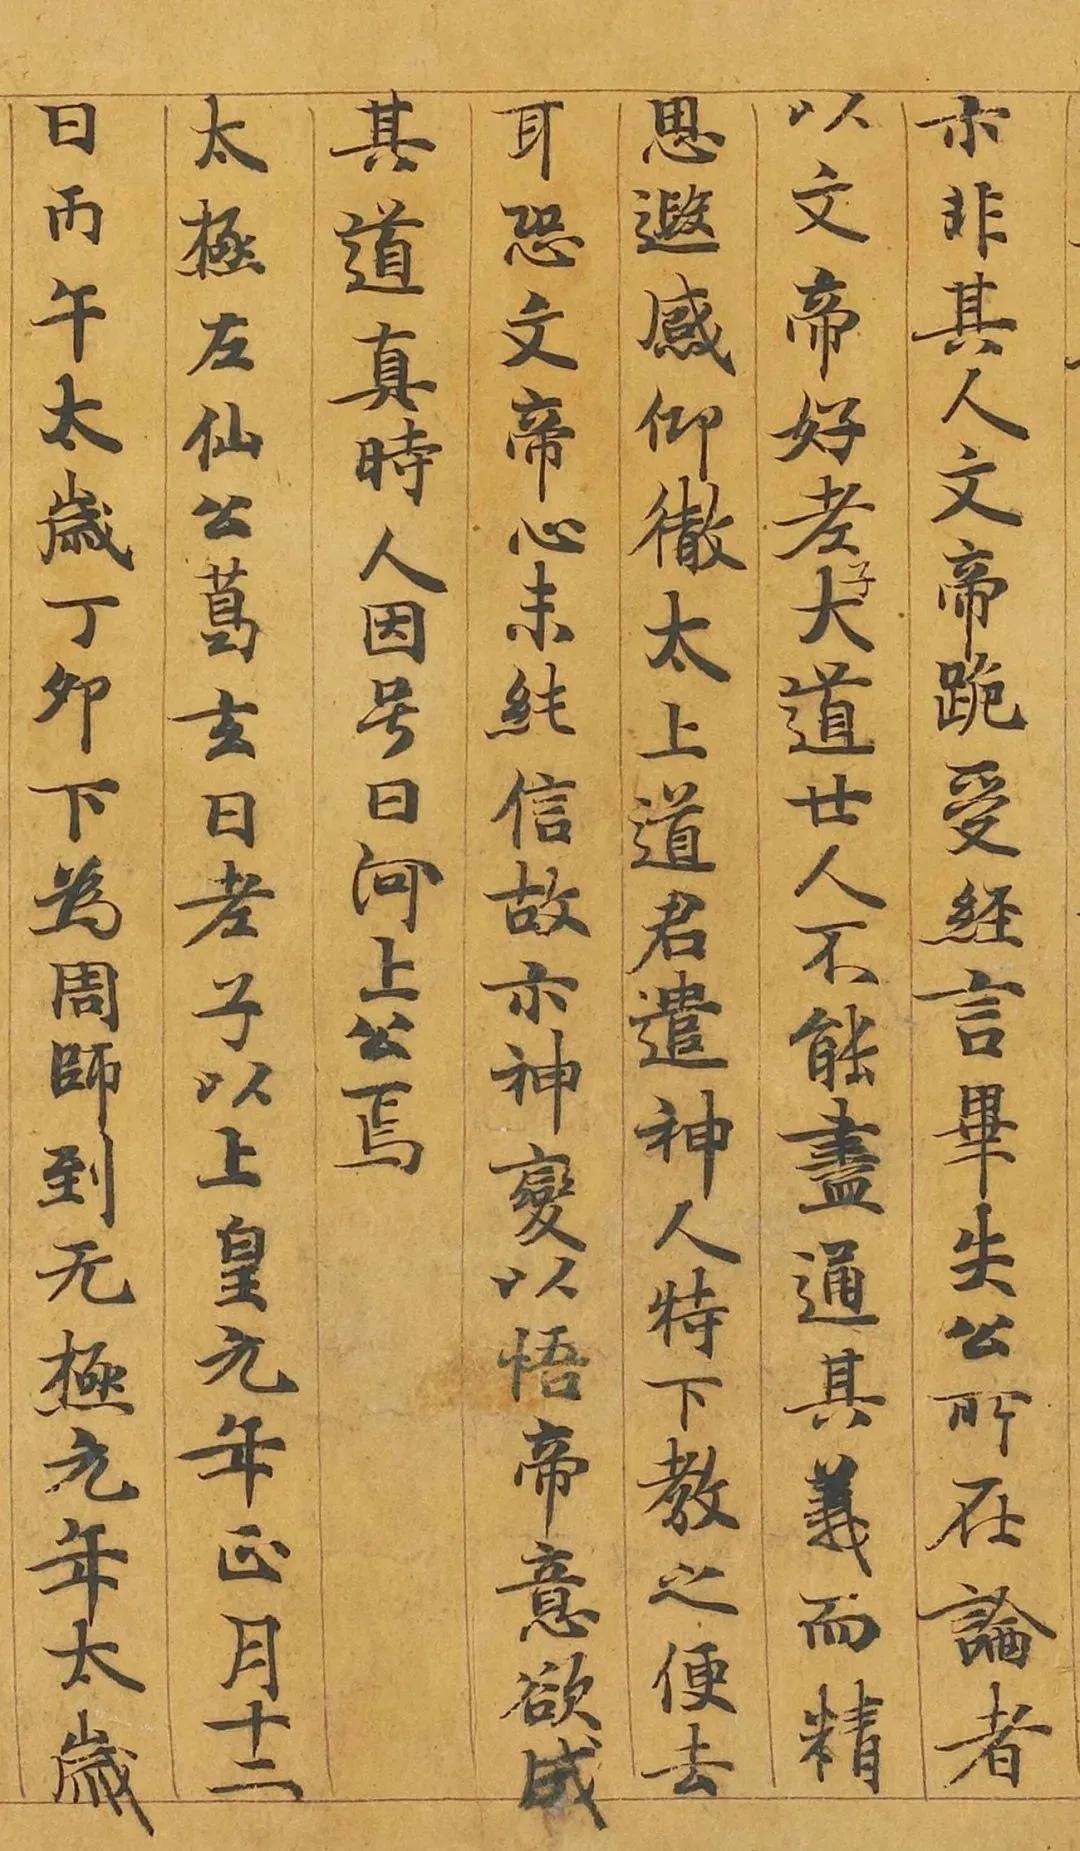 示非其人文帝跪受經言畢失公所在論者
以文帝好老子大道世人不能盡通其義而精
思遐感仰徹太上道君遣神人特下教之便去
耳恐文帝心未純信故示神變以悟帝意欲成
其道真時人因号曰河上公焉
太極左仙公葛玄曰老子以上皇元年正月十二
日丙午太歲丁卯下為周師到无極元年太歲